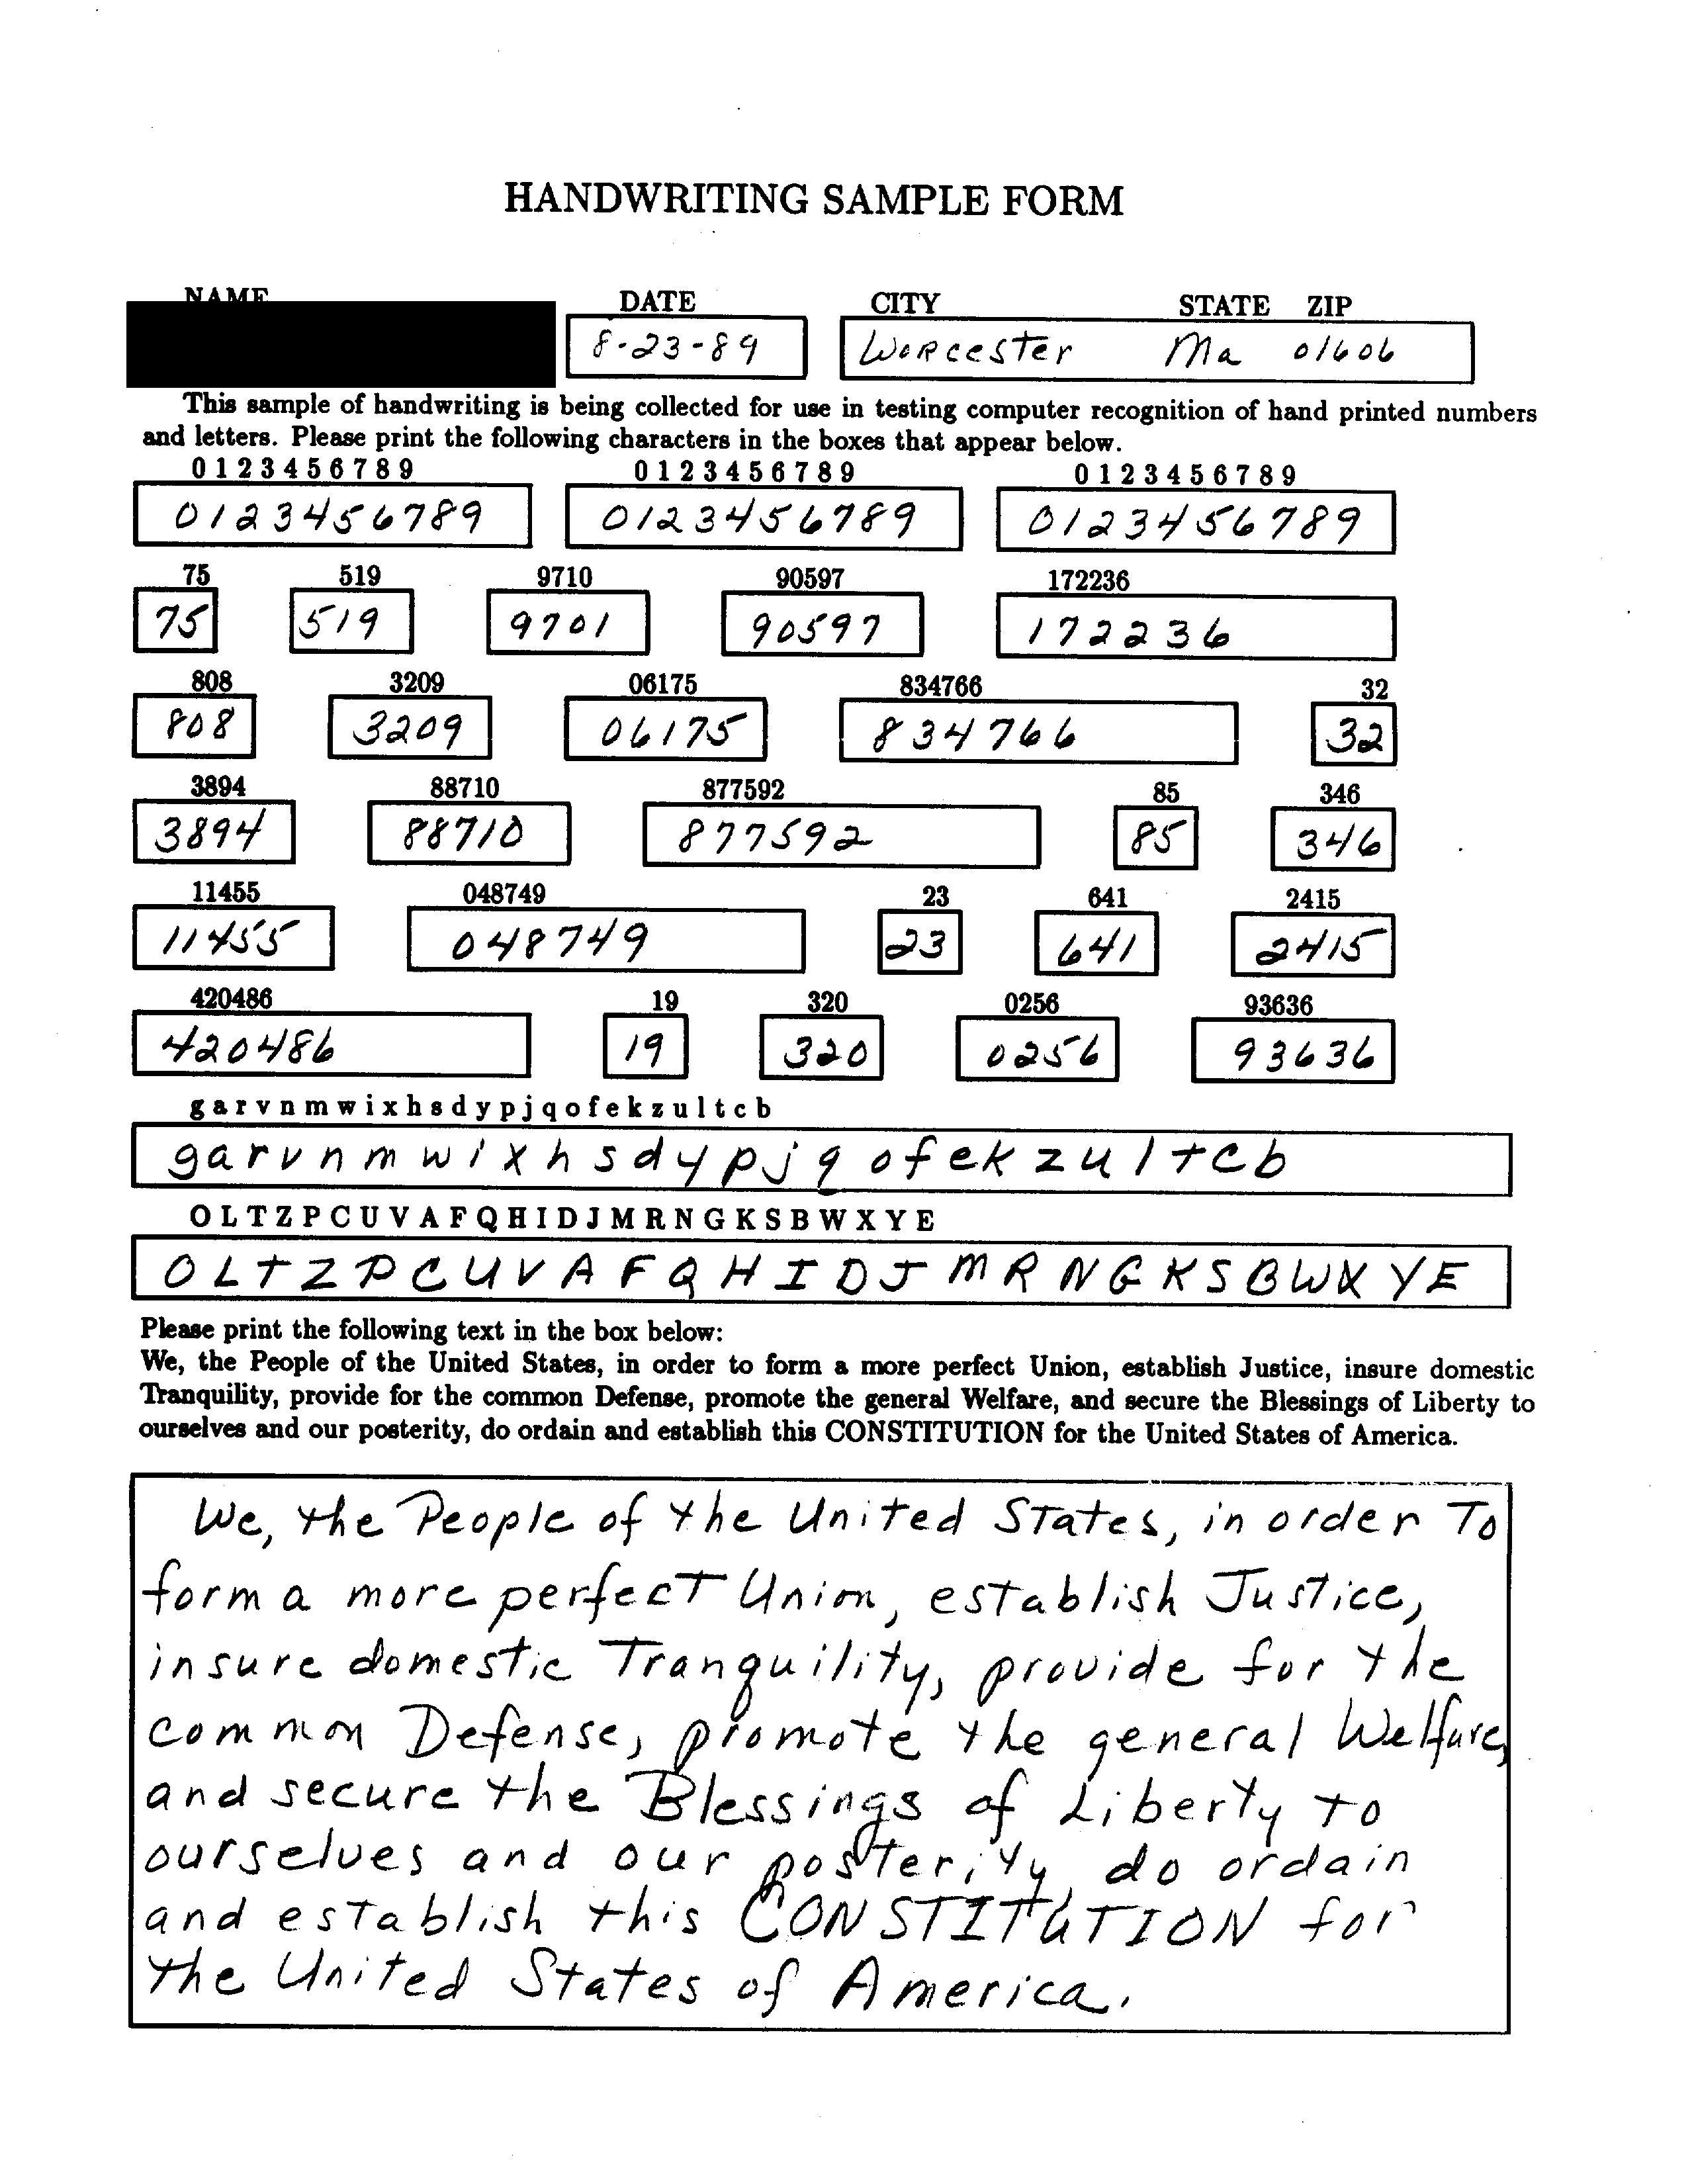 HANDWRITING SAMPLE FORM
NAME DATE CITY STATE ZIP
8-23-89 Worcester Ma 01606
This sample of handwriting is being collected for use in testing computer recognition of hand printed numbers
and letters. Please print the following characters in the boxes that appear below.
0 1 2 3 4 5 6 7 8 9 0 1 2 3 4 5 6 7 8 9 0 1 2 3 4 5 6 7 8 9
0123456789 0123456789 0123456789
75 519 9710 90597 172236
75 519 9701 90597 172236
808 3209 06175 834766 32
808 3209 06175 834766 32
3894 88710 877592 85 346
3894 88710 877592 85 346
11455 048749 23 641 2415
11455 048749 23 641 2415
420486 19 320 0256 93636
420486 19 320 0256 93636
g a r v n m w i x h s d y p j q o f e k z u l t c b
g a r v n m w i x h s d y p j q o f e k z u l t c b
O L T Z P C U V A F Q H I D J M R N G K S B W X Y E
O L T Z P C U V A F Q H I D J M R N G K S B W X Y E
Please print the following text in the box below:
We, the People of the United States, in order to form a more perfect Union, establish Justice, insure domestic
Tranquility, provide for the common Defense, promote the general Welfare, and secure the Blessings of Liberty to
ourselves and our posterity, do ordain and establish this CONSTITUTION for the United States of America.
We, the People of the United States, in order To
form a more perfect Union, establish Justice,
insure domestic Tranquility, provide for the
common Defense, promote the general Welfare,
and secure the Blessings of Liberty to
ourselves and our posterity, do ordain
and establish this CONSTITUTION for
the United States of America.